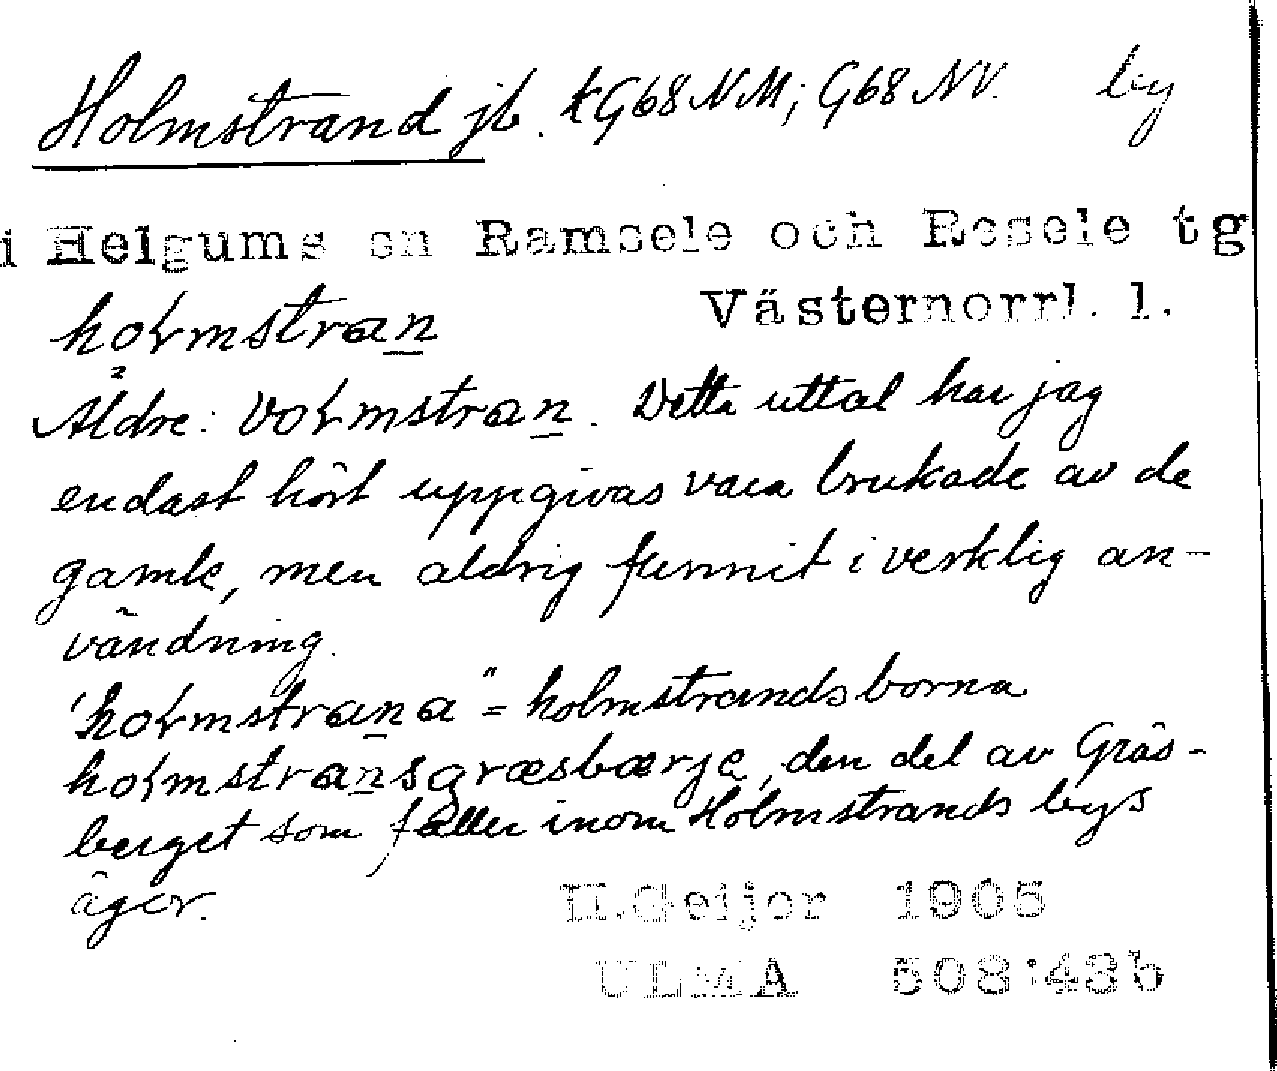 Holmstrand jb. kG68NM; G68NV. by
i Helgums sn Ramsele och Resele tg
Västernorrl. l.
hoɽmstran
Äldre: voɽmstran. Detta uttal har jag
endast hört uppgivas vara brukade av de
gamle, men aldrig funnit i verklig an-
vändning.
"hoɽmstrana" = holmstrandsborna
hoɽmstransgræsbærje, den del av Gräs-
berget som faller inom Holmstrands bys
ägor.
H.Geijer 1905
ULMA 508:43b